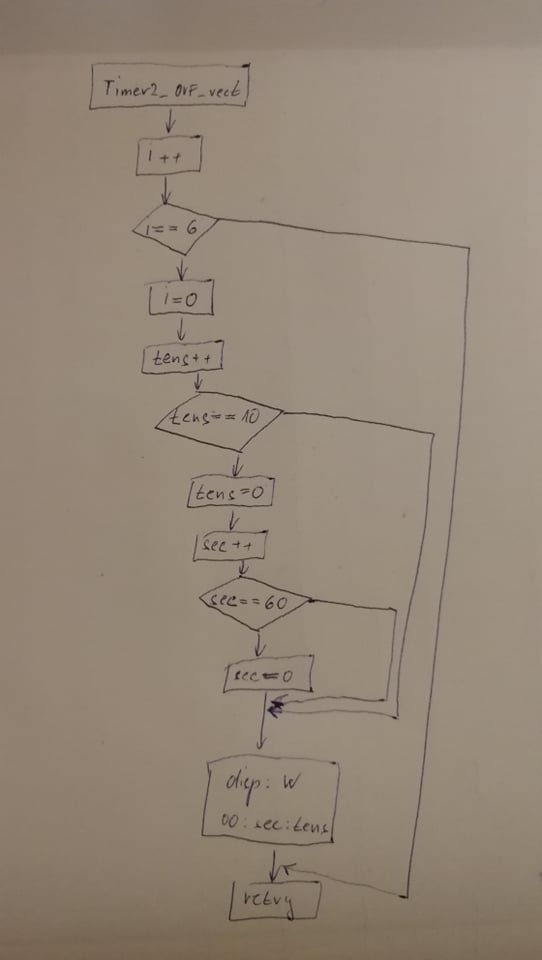 Timer2_OVF_vect
i++
i==6
i=0
tens++
tens==10
tens=0
sec++
sec==60
sec=0
disp: W
00:sec:tens